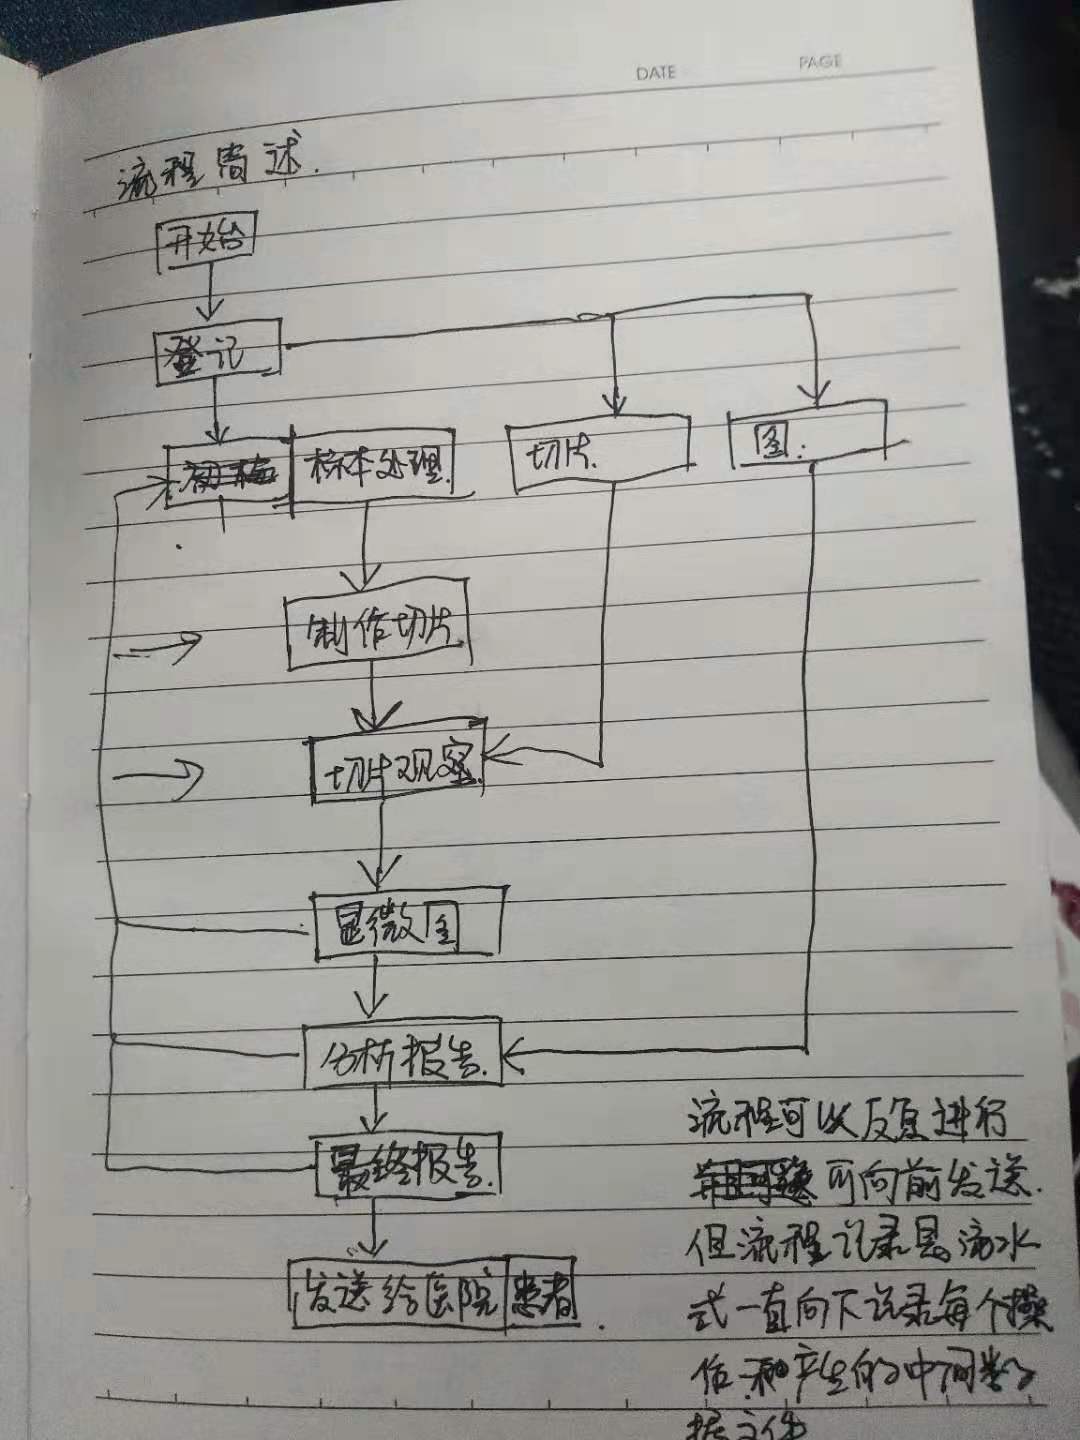 DATE
PAGE
流程简述.
开始
登记
标本处理.
切片.
图.
制作切片.
切片观察.
显微图
分析报告.
最终报告.
发送给医院 患者.
流程可以反复进行
可向前发送.
但流程记录是流水
式一直向下记录每个操
作和产生的中间数
据文件